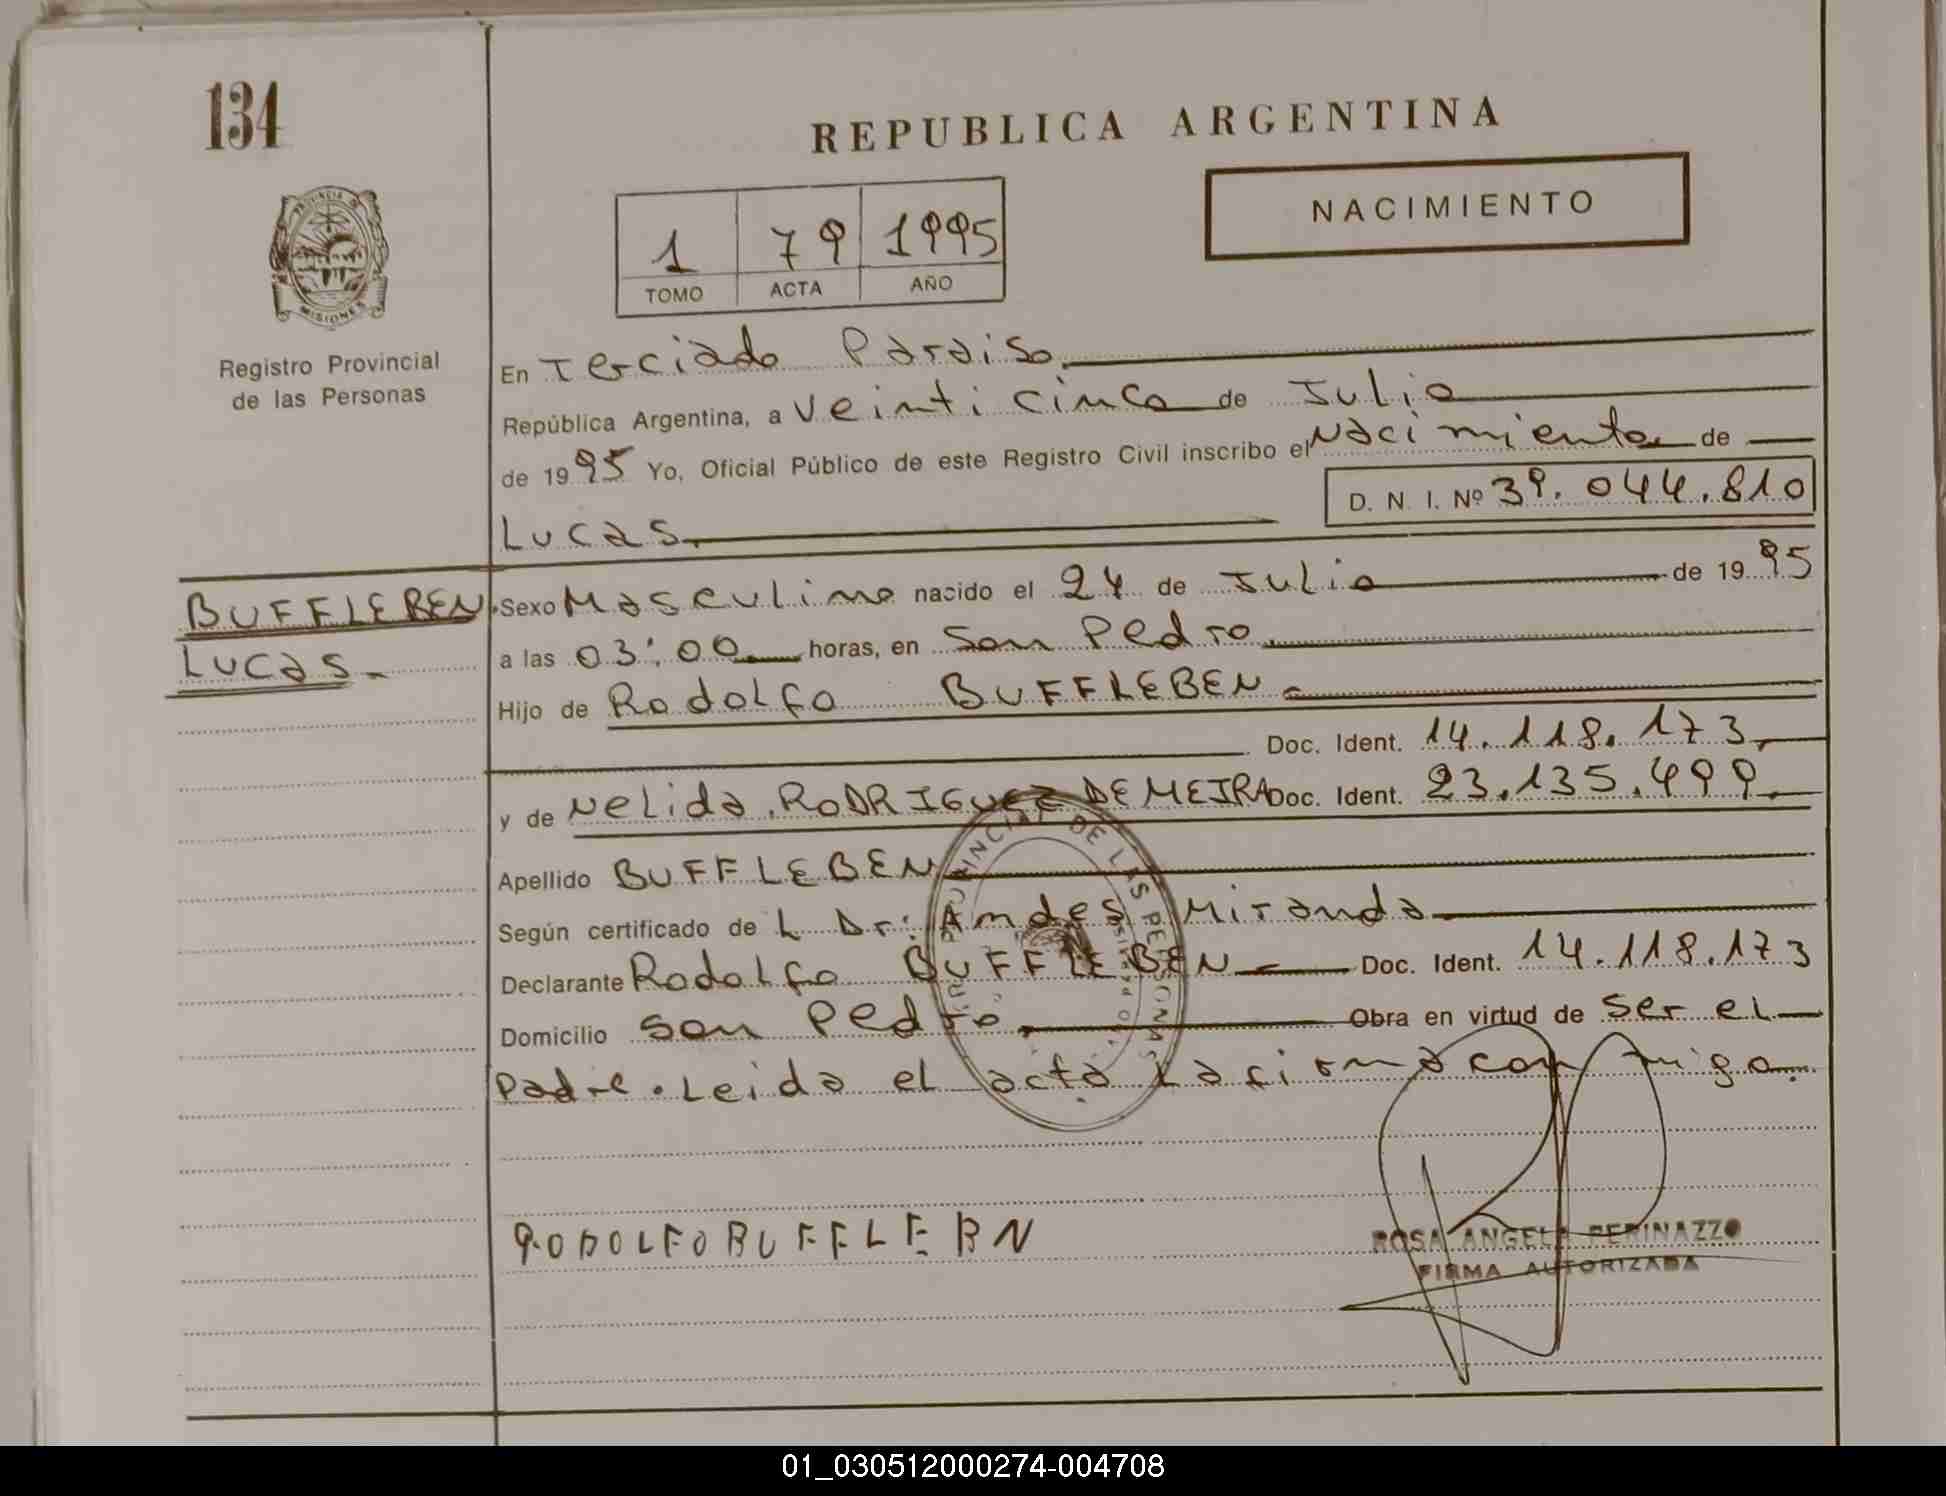 134
REPUBLICA ARGENTINA
NACIMIENTO
1 79 1995
TOMO ACTA AÑO
PROVINCIA DE
MISIONES
Registro Provincial
de las Personas
En Terciado Paraiso.
República Argentina, a Veinticinco de Julio
de 1995 Yo, Oficial Público de este Registro Civil inscribo el Nacimiento de
D. N. I. Nº 39.044.810
Lucas.
BUFFLEBEN.
Lucas.
Sexo Masculino nacido el 24 de Julio de 1995
a las 03:00 horas, en San Pedro.
Hijo de Rodolfo BUFFLEBEN
Doc. Ident. 14.118.173
y de Nelida RODRIGUEZ DE MEIRA Doc. Ident. 23.135.499.
Apellido BUFFLEBEN
Según certificado de L Dr: Miranda
Declarante Rodolfo BUFFLEBEN Doc. Ident. 14.118.173
Domicilio San Pedro. Obra en virtud de ser el
Padre. Leida el acta La firma con migo.
RODOLFO BUFFLEBN
ROSA ANGELA PERINAZZO
FIRMA AUTORIZADA
01_030512000274-004708